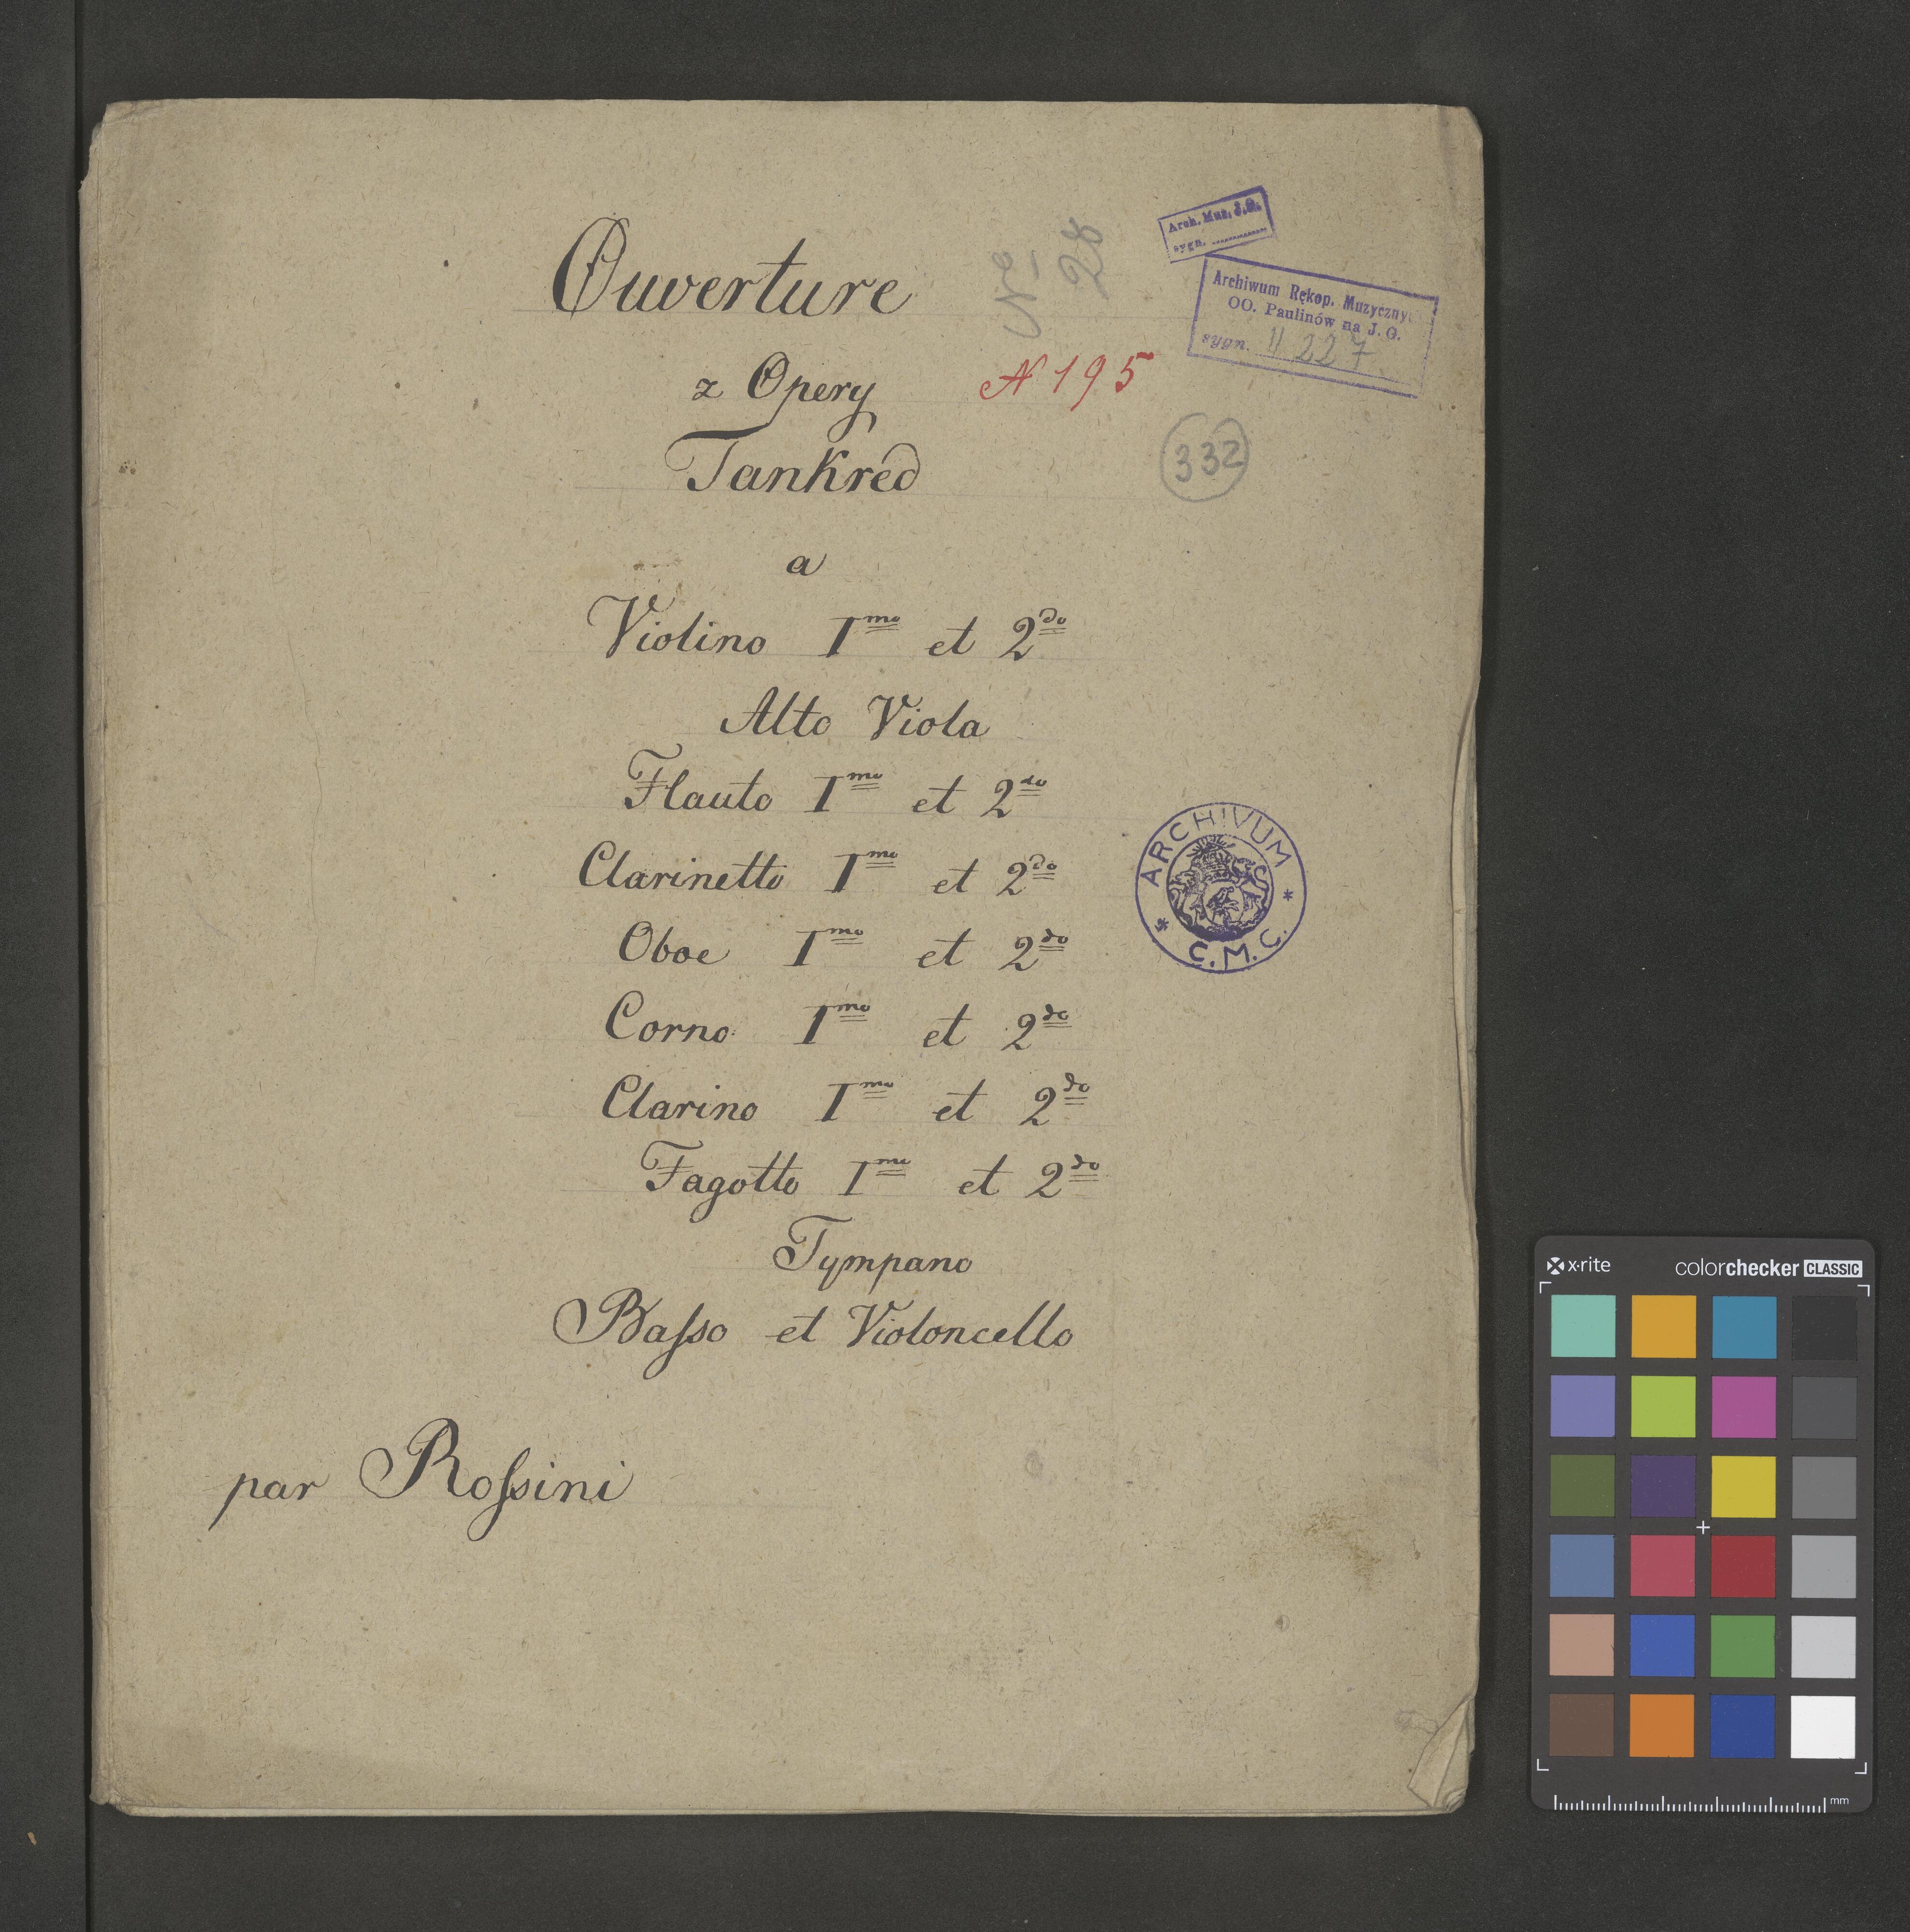 Ouverture
z Opery
Tankred
a
Violino Imo et 2do
Alto Viola
Flauto Imo et 2do
Clarinetto Imo et 2do
Oboe Imo et 2do
Corno Imo et 2do
Clarino Imo et 2do
Fagotto Imo et 2do
Tympano
Baſso et Violoncello
par Roſsini
No 28
N 195
332
Arch. Muz. J.G.
sygn.
Archiwum Rękop. Muzyczny
OO. Paulinów na J. G.
sygn. II 227
ARCHIVUM
* C.M.C. *
x·rite colorchecker CLASSIC
mm